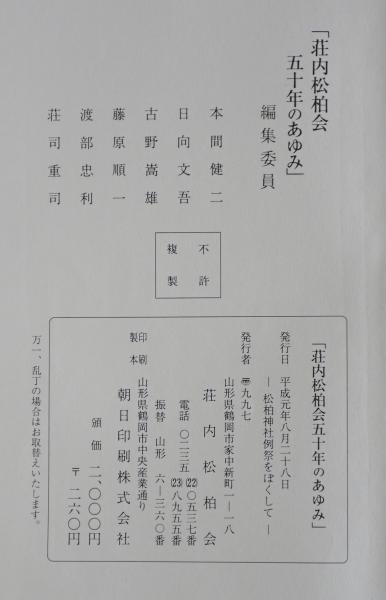 「荘内松柏会
五十年のあゆみ」
編集委員
本間健二
日向文吾
古野嵩雄
藤原順一
渡部忠利
荘司重司
不許
複製
「荘内松柏会五十年のあゆみ」
発行日 平成元年八月二十八日
― 松柏神社例祭をぼくして ―
発行者 〠九九七
山形県鶴岡市家中新町一―一八
荘内松柏会
電話 〇二三五 ㉒〇五三七番
㉓八九五五番
振替 山形 六―三六〇番
印刷
製本 山形県鶴岡市中央産業通り
朝日印刷株式会社
頒価 二、〇〇〇円
〒 二六〇円
万一、乱丁の場合はお取替えいたします。